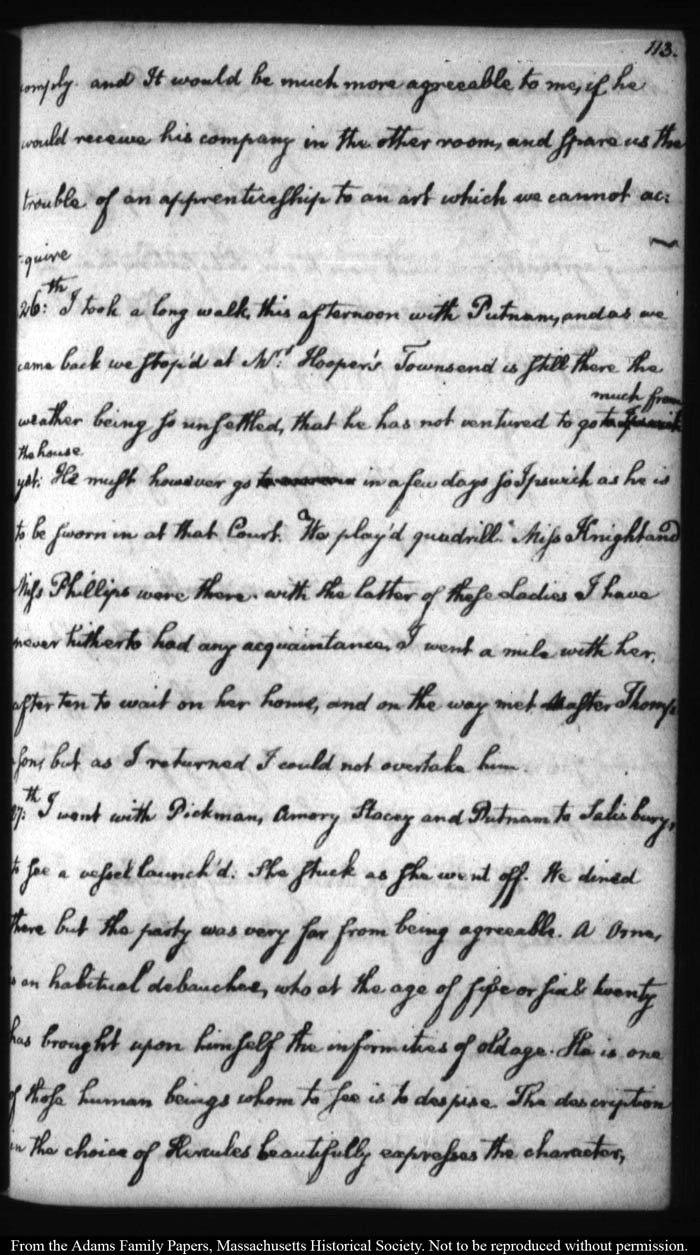 113.
comply. and It would be much more agreeable to me, if he
would receive his company in the other room, and spare us the
trouble of an apprenticeship to an art which we cannot ac:
-quire
26:th I took a long walk, this afternoon with Putnam, and as we
came back we stop'd at Mrs. Hooper's Townsend is still there the
much from
weather being so unsettled, that he has not ventured to go to Ipswich
the house
yet: He must however go in a few days to Ipswich as he is
to be sworn in at that Court. We play'd quadrill. Miss Knight and
Miss Phillips were there. with the latter of these Ladies I have
never hitherto had any acquaintance, I went a mile with her,
after ten to wait on her home, and on the way met Master Thomp
-son, but as I returned I could not overtake him.
27:th I went with Pickman, Amory Stacey and Putnam to Salisbury,
to see a vessel launch'd: She stuck as she went off. We dined
there but the party was very far from being agreeable. A Orne,
is an habitual debauchee, who at the age of five or six & twenty
has brought upon himself the infirmities of old age. He is one
of those human beings whom to see is to despise The description
in the choice of Hercules beautifully expresses the character,
From the Adams Family Papers, Massachusetts Historical Society. Not to be reproduced without permission.